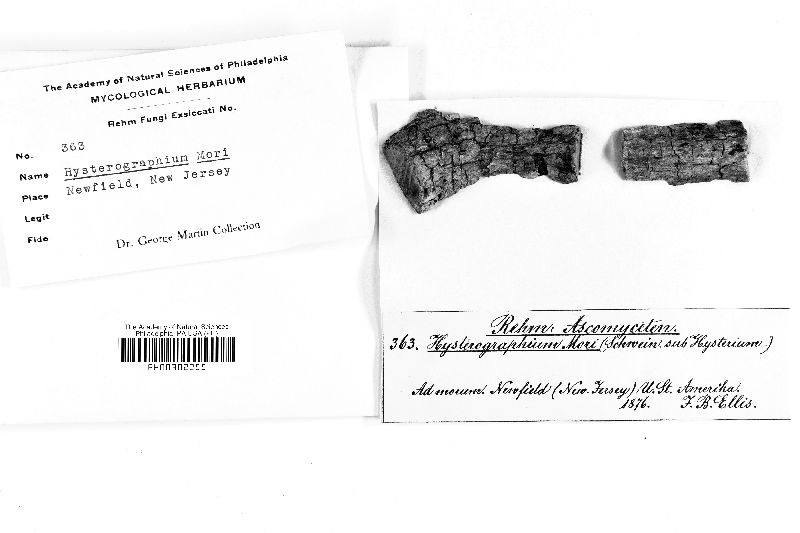 The Academy of Natural Sciences of Philadelphia
MYCOLOGICAL HERBARIUM
Rehm Fungi Exsiccati No.
No. 363
Name Hysterographium Mori
Place Newfield, New Jersey
Legit
Fide
Dr. George Martin Collection
The Academy of Natural Sciences
Philadelphia, PA USA
Rehm: Ascomyceten.
363. Hysterographium Mori (Schwein. sub Hysterium.)
Ad morum. Newfield (New. Jersey) U. St. Amerika.
1876. J. B. Ellis.